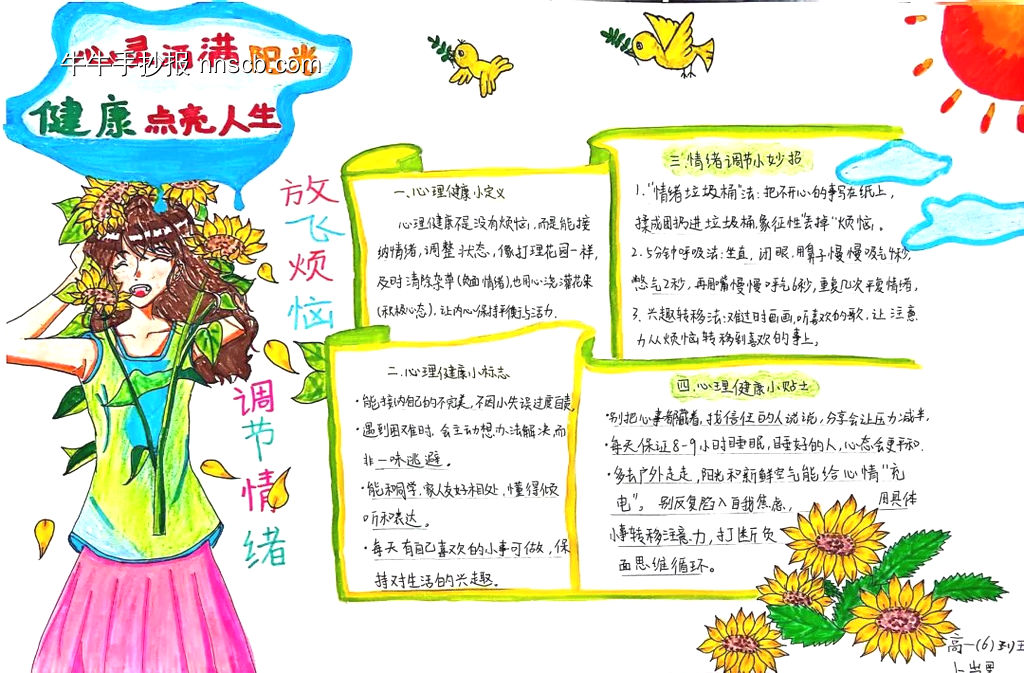 心灵洒满阳光
牛牛手抄报 nnscb.com
健康点亮人生
放飞烦恼
调节情绪
一、心理健康小定义
心理健康不是没有烦恼,而是能接
纳情绪,调整状态,像打理花园一样,
及时清除杂草(负面情绪),也用心浇灌花朵
(积极心态),让内心保持平衡与活力.
二、心理健康小标志
·能接纳自己的不完美,不因小失误过度自责,
·遇到困难时,会主动想办法解决,而
非一味逃避。
·能和同学、家人友好相处,懂得倾
听和表达。
·每天有自己喜欢的小事可做,保
持对生活的兴趣。
三、情绪调节小妙招
1.“情绪垃圾桶”法:把不开心的事写在纸上,
揉成团扔进垃圾桶,象征性“丢掉”烦恼。
2.5分钟呼吸法:坐直,闭眼,用鼻子慢慢吸气4秒,
憋气2秒,再用嘴慢慢呼气6秒,重复几次平复情绪,
3.兴趣转移法:难过时画画,听喜欢的歌,让注意
力从烦恼转移到喜欢的事上。
四、心理健康小贴士
·别把心事都藏着,找信任的人说说,分享会让压力减半,
·每天保证8-9小时睡眠,睡好的人,心态会更平和.
·多去户外走走,阳光和新鲜空气能给心情“充
电”。别反复陷入自我焦虑,用具体
小事转移注意力,打断负
面思维循环。
高一(6)班